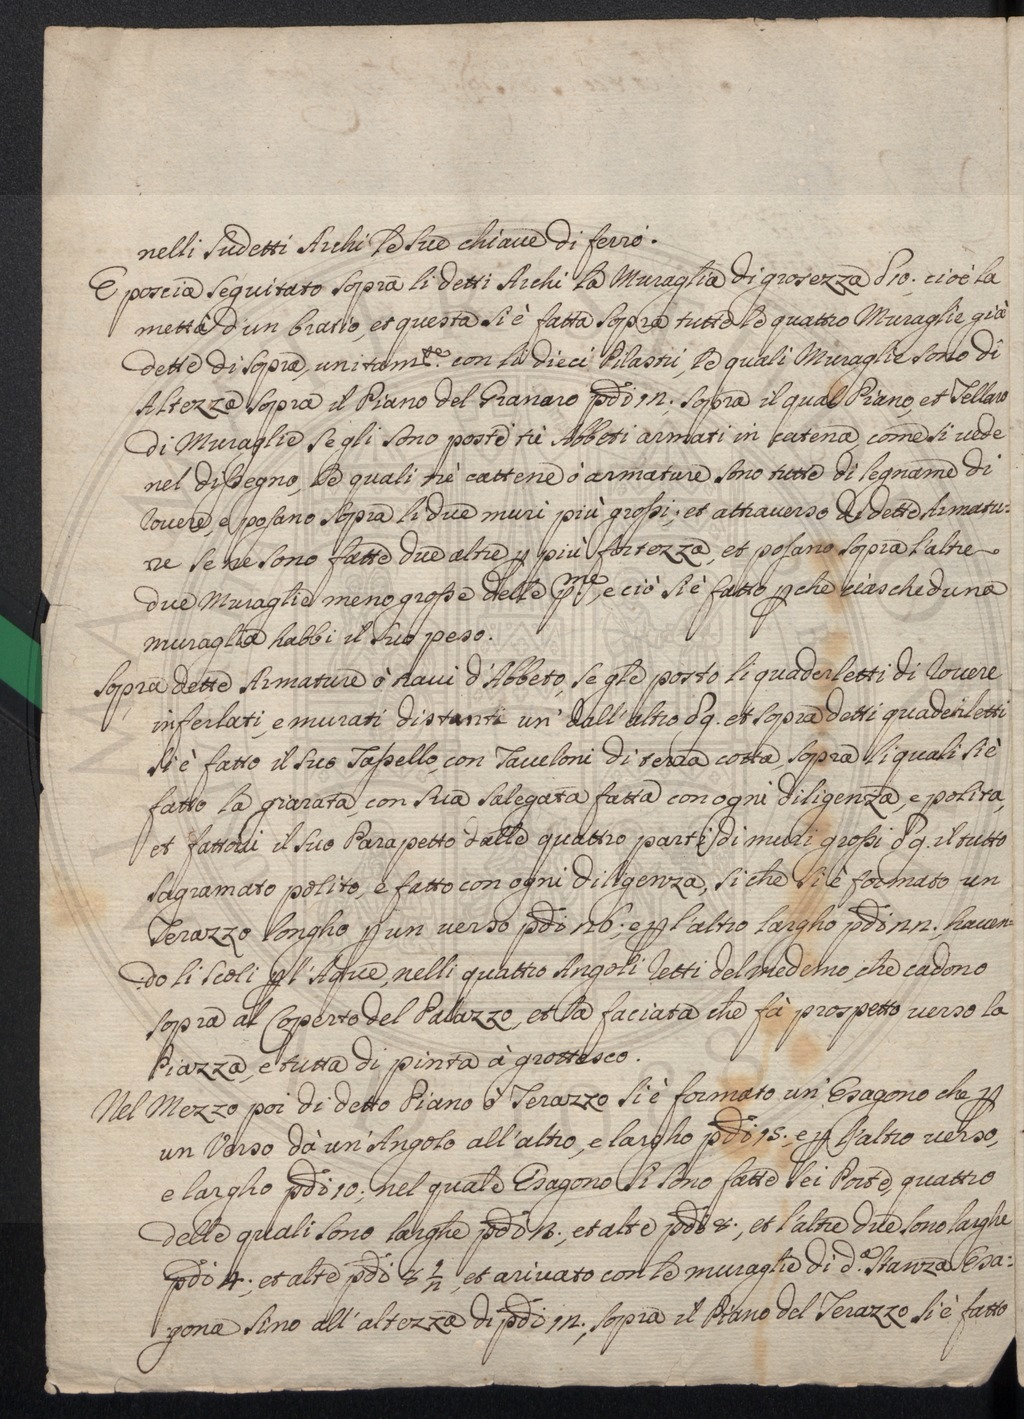 nelli sudetti Archi le sue chiaue di ferro.
E poscia seguitato sopra li detti Archi la Muraglia di grosezza d 10; cioè la
mettà d'un bratio, et questa si è fatta sopra tutte le quattro Muraglie già
dette di sopra, unitam.te con li dieci Pilastri, le quali Muraglie sono di
Altezza sopra il Piano del Granaro pdi 12; sopra il qual Piano, et Tellaro
di Muraglie se gli sono poste trè Abbeti armati in catena, come si uede
nel disegno, le quali trè cattene ò armature sono tutte di legname di
rouere, e posano sopra li due muri più grossi; et attrauerso di dette Armatu:
re se ne sono fatte due altre p più fortezza, et posano sopra l'altre
due Muraglie meno grosse delle p.me, e ciò si è fatto pche ciascheduna
muraglia habbi il suo peso.
Sopra dette Armature ò traui d'Abbeto, se gle posto li quaderletti di rouere
inferlati, e murati distanti un' dall'altro d 9. et sopra detti quaderletti
si è fatto il suo Tassello, con Taueloni di terra cotta, sopra li quali si è
fatto la giarata, con sua salegata fatta con ogni diligenza, e polita,
et fattoui il suo Parapetto dalle quattro parti di muri grossi d 9. il tutto
sagramato polito, e fatto con ogni diligenza, si che si è formato un
Terazzo longho p un verso pdi 26; e p l'altro largho pdi 22; hauen:
do li scoli p l'Aque, nelli quattro Angoli retti del medemo, che cadono
sopra al Coperto del Palazzo, et la faciata che fà prospetto uerso la
Piazza, e tutta di pinta à grottesco.
Nel Mezzo poi di detto Piano ò Terazzo si è formato un' Esagono che p
un Verso dà un'Angolo all'altro, e largho pdi 15; e p l'altro uerso,
e largho pdi 10; nel quale Esagono si sono fatte sei Porte, quattro
delle quali sono larghe pdi et alte pdi 8; et l'altre due sono larghe
pdi 4; et alte pdi 8 1/2, et ariuato con le muraglie di d.a Stanza Esa:
gona sino all'altezza di pdi 12; sopra il Piano del Terazzo si è fatto